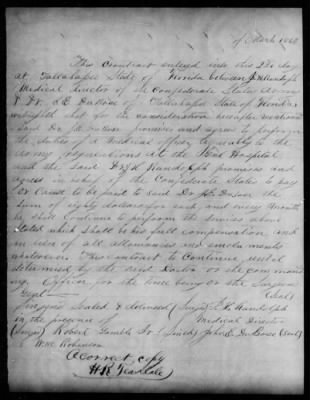 of March 1862
This Contract entered into this 22d day
at Tallahassee State of Florida between J H Randolph
Medical Director of the Confederate States Army
& Dr. J E DuBose of Tallahassee State of Florida,
witnesseth that for the consideration hereafter mentioned
Said Dr. J E DuBose promises and agrees to perform
the duties of a Medical officer, agreeably to the
Army regulations at the Post Hospital
and the Said Dr J H Randolph promises and
agrees in behalf of the Confederate States to pay
or Cause to be paid to said Dr J E DuBose the
Sum of eighty dollars for each and every Month
he shall Continue to perform the Services above
Stated which shall be his full compensation and
in lieu of all allowances and emoluments
whatsoever. This contract to Continue until
determined by the said Doctor or the commanding
Officer for the time being or the Surgeon
Genl (Seal)
Signed Sealed & delivered (Signed) J. H. Randolph
in the presence of Medical Director
(Signed) Robert Gamble (Signed) John E DuBose (Seal)
Wm Robinson
A Correct copy